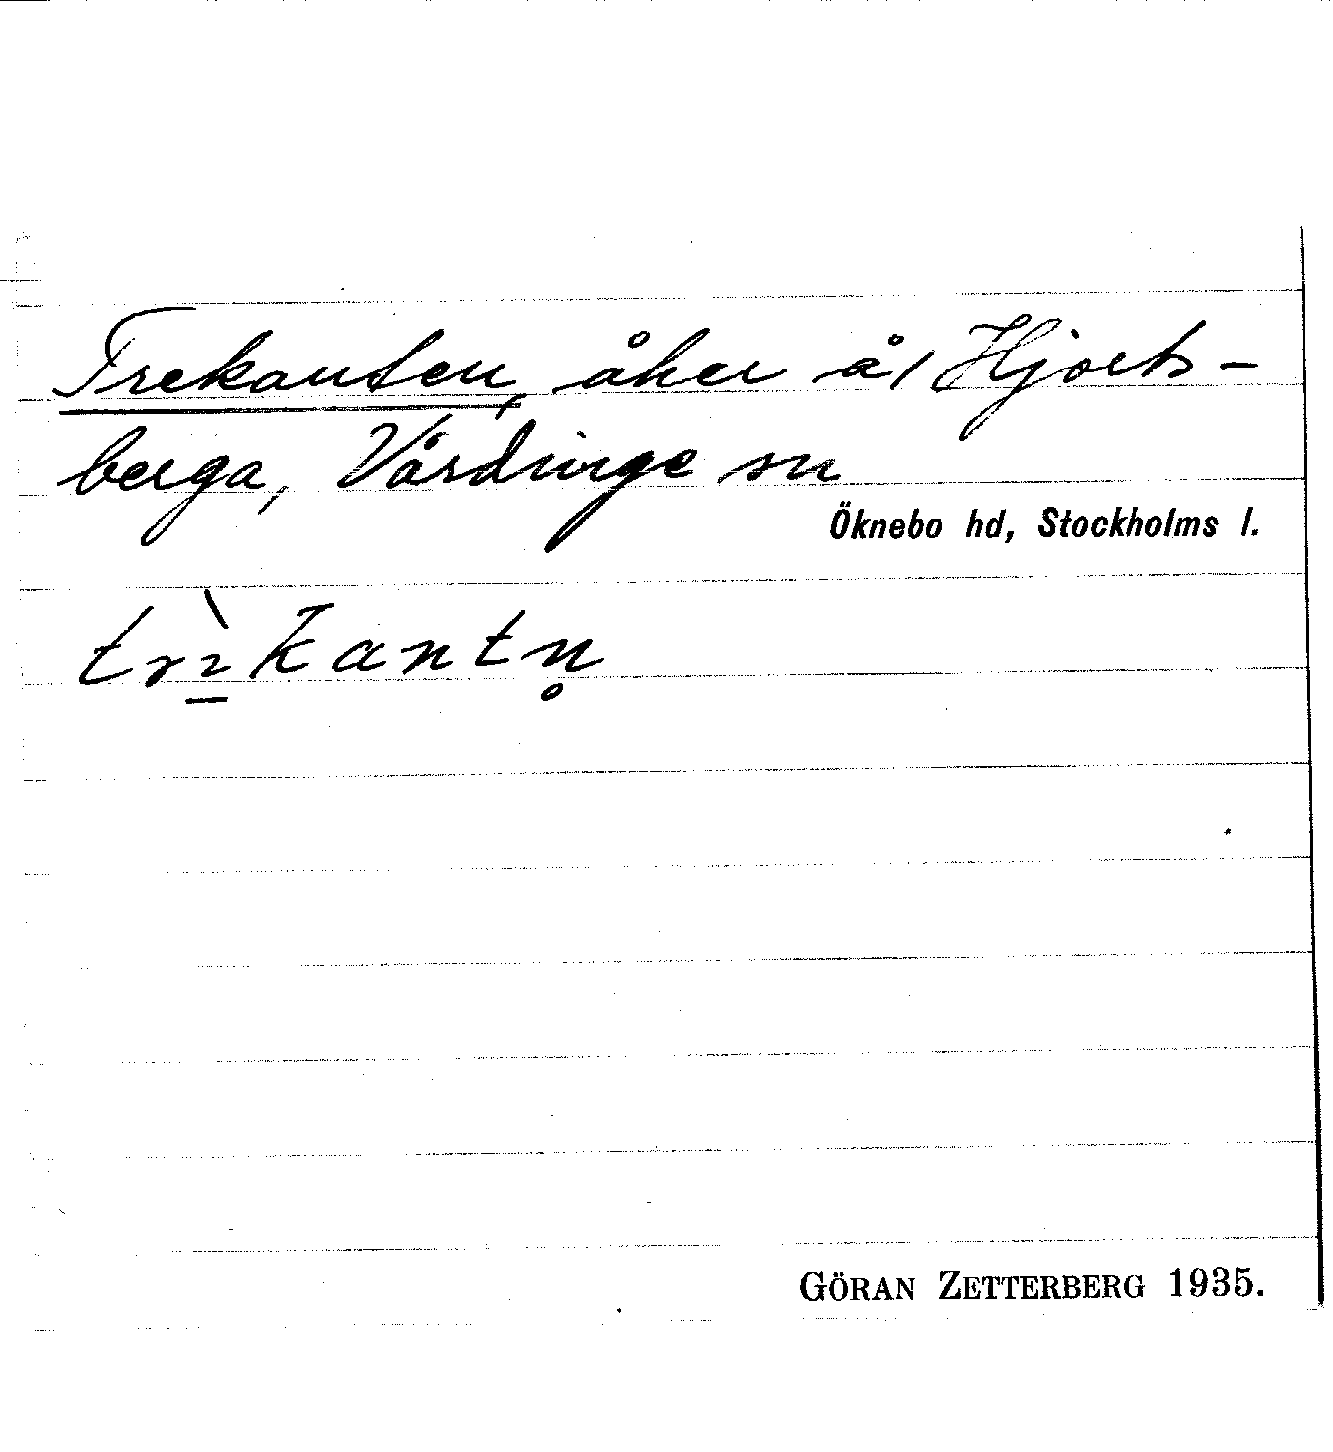 Trekanten, åker å/ Hjorts-
berga, Vårdinge sn
Öknebo hd, Stockholms l.
trı̲̀kantn̥
GÖRAN ZETTERBERG 1935.